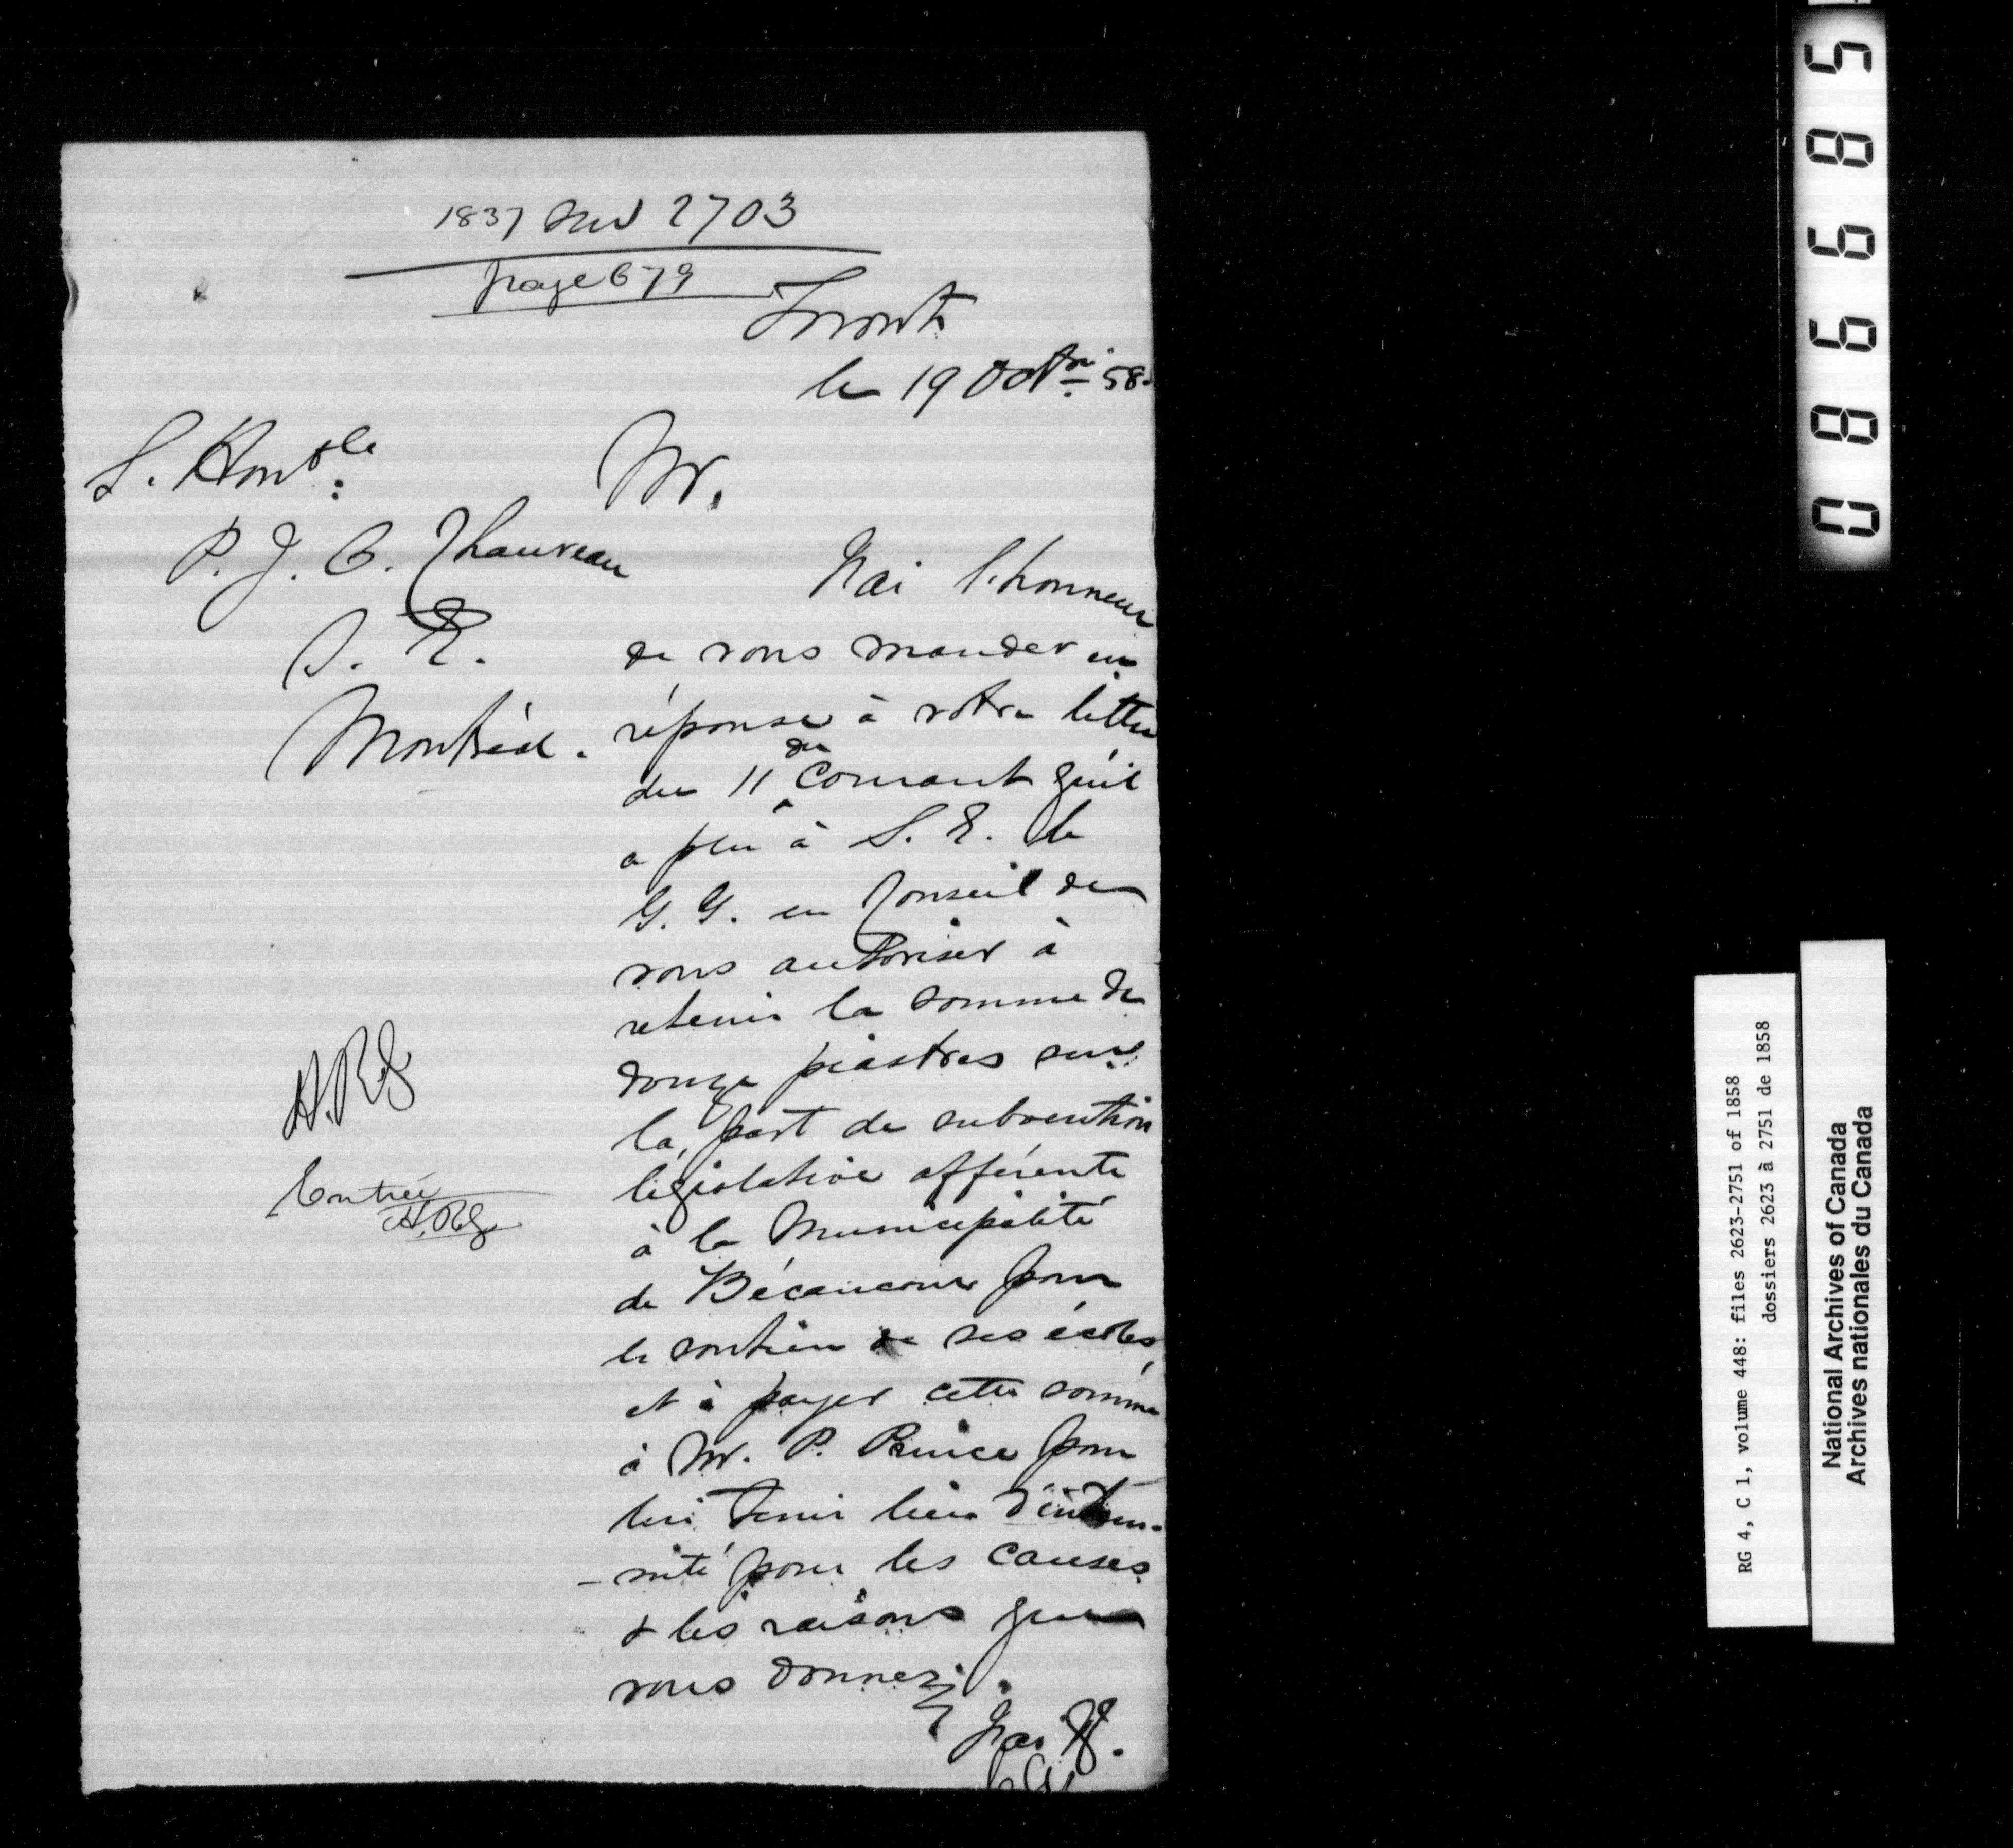 1837 sur 2703
page 679
Toronto
le 19 Octbre 58.
L'Honble:
P. J. O. Chauveau
S. E.
Montréal.
Mr.
J'ai l'honneur
de vous mander en
réponse à votre lettre
du 11 du Courant qu'il
a plu à S. E. le
G. G. en Conseil de
vous autoriser à
retenir la somme de
douze piastres sur
la part de subvention
législative afférente
à la Municipalité
de Bécancour pour
le soutien de ses écoles,
et à payer cette somme
à Mr. P. Prince pour
lui tenir lieu d'indem-
-nité pour les causes
& les raisons que
vous donnez.
J'ai
Entrée
08685
RG 4, C 1, volume 448: files 2623-2751 of 1858
dossiers 2623 à 2751 de 1858
National Archives of Canada
Archives nationales du Canada